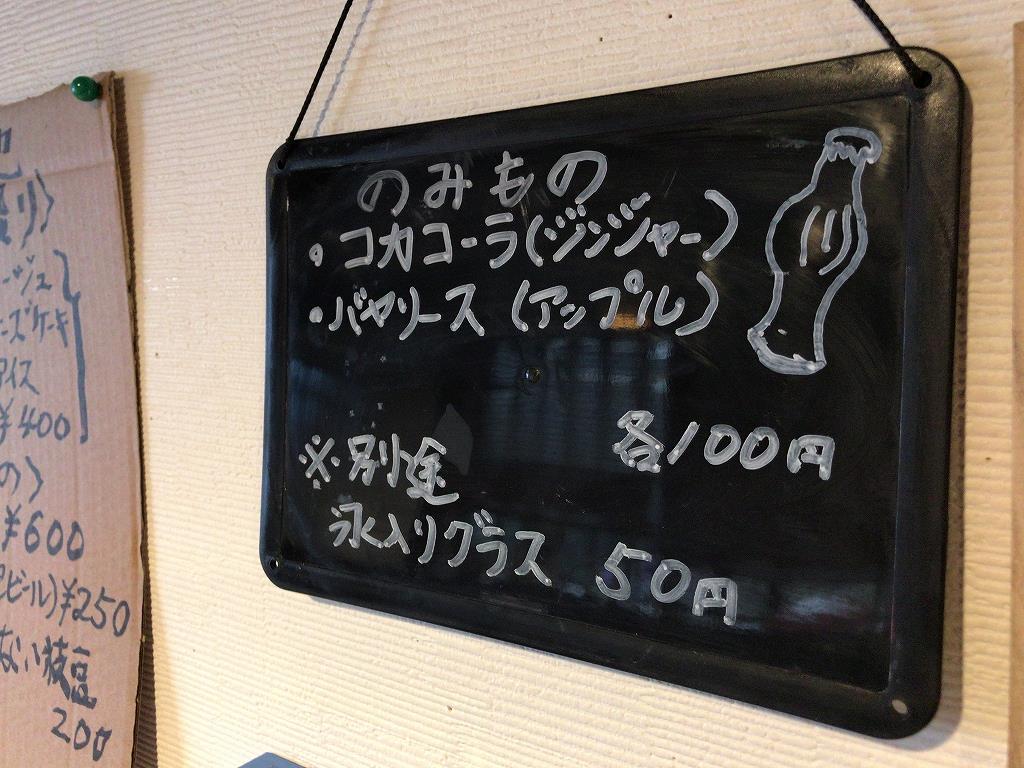 のみもの
・コカコーラ(ジンジャー)
・バヤリース(アップル)
各100円
※別途
氷入りグラス 50円
ーズケーキ
アイス
¥400
の〉
¥600
ビール)¥250
ない枝豆
200